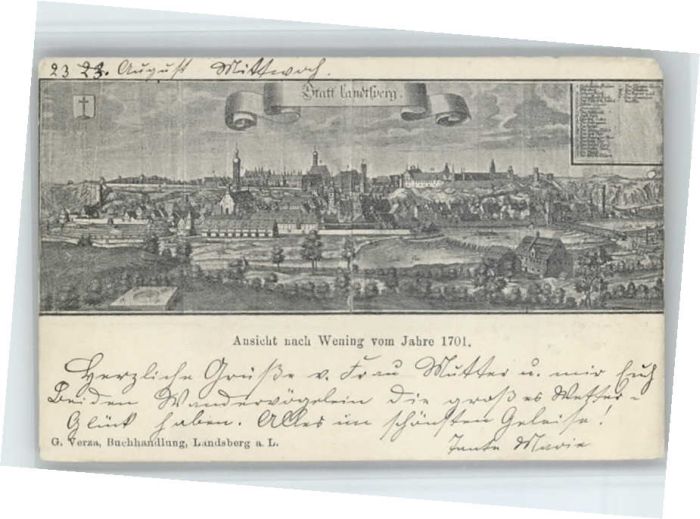 23 23. August Mittwoch.
Statt Landtsperg.
Ansicht nach Wening vom Jahre 1701.
Herzliche Grüße v. Frau Mutter u. mir Euch
Beiden Wandervögelein die großes Wetter-
Glück haben. Alles im schönsten Geleise!
G. Verza, Buchhandlung, Landsberg a. L.
Tante Marie